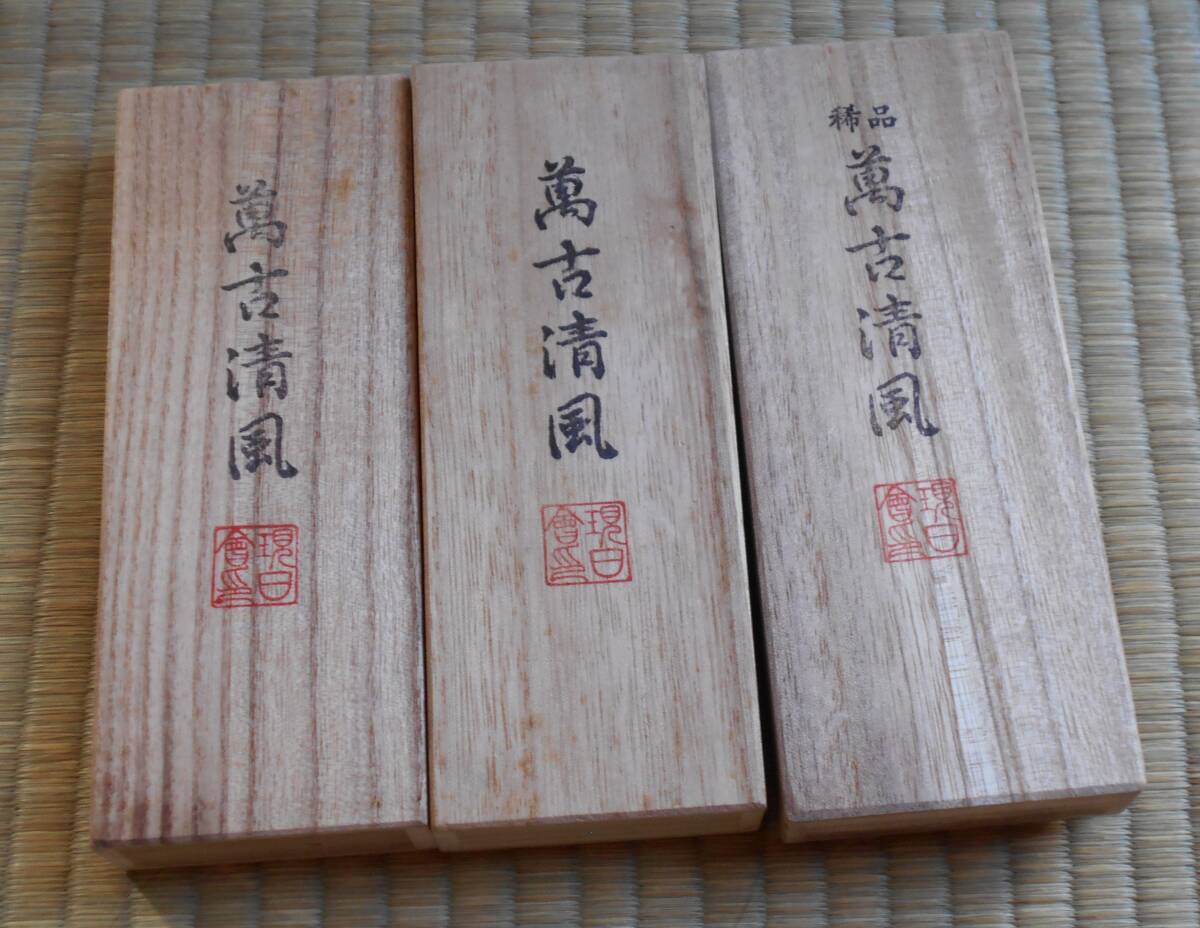 萬古清風
現日會印
萬古清風
現日會印
稀品
萬古清風
現日會印